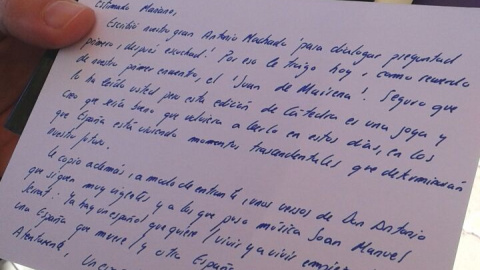 Estimado Mariano,
Escribió nuestro gran Antonio Machado 'para dialogar preguntad
primero; después escuchad'. Por eso le traigo hoy, como recuerdo
de nuestro primer encuentro, el 'Juan de Mairena'. Seguro que
lo ha leído usted pero esta edición de Cátedra es una joya y
creo que sería bueno que volviera a leerlo en estos días, en los
que España está viviendo momentos trascendentales que determinarán
nuestro futuro.
Le copio además, a modo de entrante, unos versos de Don Antonio
que siguen muy vigentes y a los que puso música Joan Manuel
Serrat: Ya hay un español que quiere / vivir y a vivir empieza
una España que muere / y otra España
Atentamente,